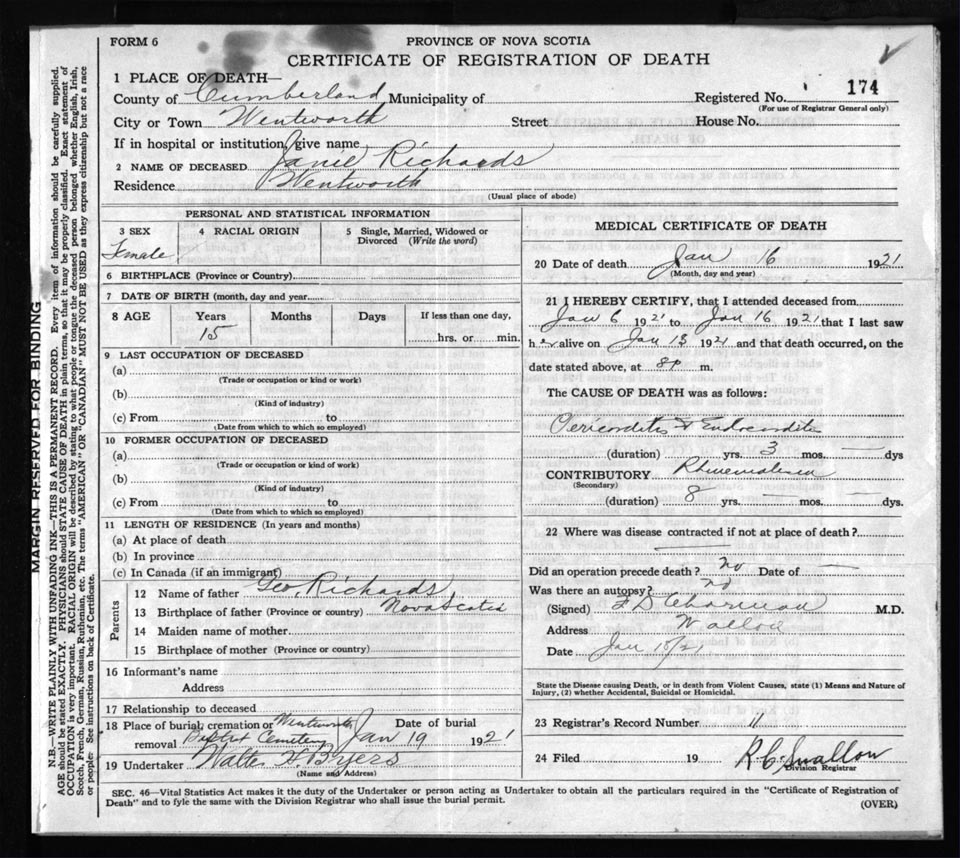 FORM 6
PROVINCE OF NOVA SCOTIA
CERTIFICATE OF REGISTRATION OF DEATH
1 PLACE OF DEATH—
County of Cumberland Municipality of
Registered No. 174
(For use of Registrar General only)
City or Town Wentworth Street House No.
If in hospital or institution, give name
2 NAME OF DECEASED Janie Richards
Residence Wentworth
(Usual place of abode)
PERSONAL AND STATISTICAL INFORMATION
3 SEX
Female
4 RACIAL ORIGIN
5 Single, Married, Widowed or Divorced (Write the word)
6 BIRTHPLACE (Province or Country)
7 DATE OF BIRTH (month, day and year)
8 AGE Years Months Days If less than one day,
15 hrs. or min.
9 LAST OCCUPATION OF DECEASED
(a)
(Trade or occupation or kind or work)
(b)
(Kind of industry)
(c) From to
(Date from which to which so employed)
10 FORMER OCCUPATION OF DECEASED
(a)
(Trade or occupation or kind of work)
(b)
(Kind of industry)
(c) From to
(Date from which to which so employed)
11 LENGTH OF RESIDENCE (In years and months)
(a) At place of death
(b) In province
(c) In Canada (if an immigrant)
Parents
12 Name of father Geo. Richards
13 Birthplace of father (Province or country) Nova Scotia
14 Maiden name of mother
15 Birthplace of mother (Province or country)
16 Informant's name
Address
17 Relationship to deceased
18 Place of burial, cremation or removal Wentworth Baptist Cemetery
Date of burial Jan 19 1921
19 Undertaker Walter H. Byers
(Name and Address)
MEDICAL CERTIFICATE OF DEATH
20 Date of death Jan 16 1921
(Month, day and year)
21 I HEREBY CERTIFY, that I attended deceased from
Jan 6 1921 to Jan 16 1921 that I last saw
her alive on Jan 13 1921 and that death occurred, on the
date stated above, at 8P m.
The CAUSE OF DEATH was as follows:
Pericarditis & Endocarditis
(duration) yrs. 3 mos. — dys
CONTRIBUTORY
(Secondary)
(duration) 8 yrs. — mos. — dys.
22 Where was disease contracted if not at place of death?
Did an operation precede death? no Date of —
Was there an autopsy? no
(Signed) M.D.
Address
Date
State the Disease causing Death, or in death from Violent Causes, state (1) Means and Nature of
Injury, (2) whether Accidental, Suicidal or Homicidal.
23 Registrar's Record Number 11
24 Filed 19 R.C. Swallow
Division Registrar
SEC. 46—Vital Statistics Act makes it the duty of the Undertaker or person acting as Undertaker to obtain all the particulars required in the "Certificate of Registration of
Death" and to fyle the same with the Division Registrar who shall issue the burial permit.
(OVER)
MARGIN RESERVED FOR BINDING
N.B.—WRITE PLAINLY WITH UNFADING INK—THIS IS A PERMANENT RECORD. Every item of information should be carefully supplied.
AGE should be stated EXACTLY. PHYSICIANS should STATE CAUSE OF DEATH in plain terms, so that it may be properly classified. Exact statement of
OCCUPATION is very important. RACIAL ORIGIN will be described by stating to what people or tongue the deceased person belonged whether English, Irish,
Scotch, French, German, Russian, Ruthenian, etc. The terms "AMERICAN" OR "CANADIAN" MUST NOT BE USED as they express citizenship but not a race
or people. See instructions on back of Certificate.